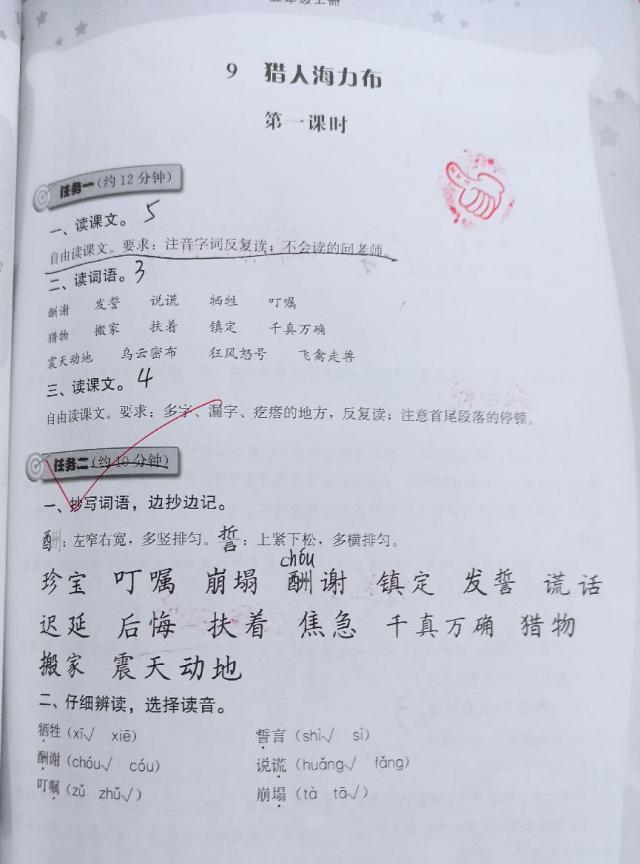 五年级上册
9 猎人海力布
第一课时
任务一(约12分钟)
一、读课文。 5
自由读课文。要求：注音字词反复读；不会读的问老师。
二、读词语。 3
酬谢 发誓 说谎 牺牲 叮嘱
猎物 搬家 扶着 镇定 千真万确
震天动地 乌云密布 狂风怒号 飞禽走兽
三、读课文。 4
自由读课文。要求：多字、漏字、疙瘩的地方，反复读；注意首尾段落的停顿。
任务二(约10分钟)
一、抄写词语，边抄边记。
酬：左窄右宽，多竖排匀。誓：上紧下松，多横排匀。
chóu
珍宝 叮嘱 崩塌 酬谢 镇定 发誓 谎话
迟延 后悔 扶着 焦急 千真万确 猎物
搬家 震天动地
二、仔细辨读，选择读音。
牺牲（xī√ xiē） 誓言（shì√ sì）
酬谢（chóu√ cóu） 说谎（huǎng√ fǎng）
叮嘱（zǔ zhǔ√） 崩塌（tà tā√）